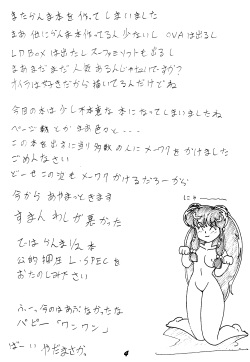 またらんま本を作ってしまいました
まぁ他にらんま本作ってる人少ないし OVAは出るし
LD BOXは出たしスーファミソフトもでるし
まぁまだまだ人気あるんじゃないですか?
オイラは好きだから描いてるんだけどね
今日の本は少し不本意な本になってしまいましたね
ページ数とか まぁ色々と・・・
この本を出すに当り多数の人にメーワクをかけました
ごめんなさい
どーせこの次もメーワクかけるだろーから
今からあやまっときます
すまん わしが悪かった
では らんま1/2本
公的押圧 L・SPECを
おたのしみ下さい
ふー、今のはあぶなかったな
ベビー「ワンワン」
ばーい やだまさか。
にゃー
4